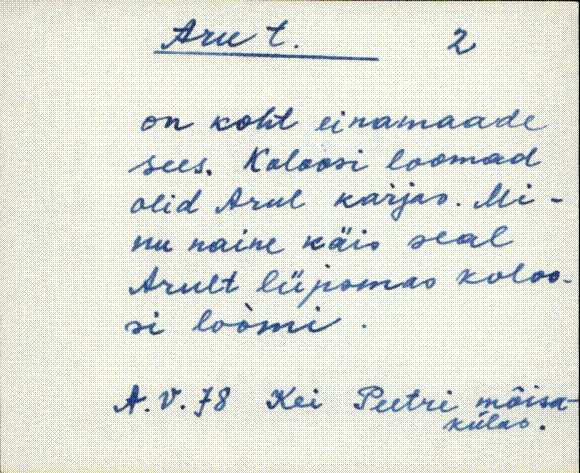 Aru t. 2
on koht einamaade
sees. Koloosi loomad
olid Arul karjas. Mi-
nu naine käis seal
Arult lüpsmas koloo-
si loòmi.
A.V.78 Kei Peetri mõisa-
külas.